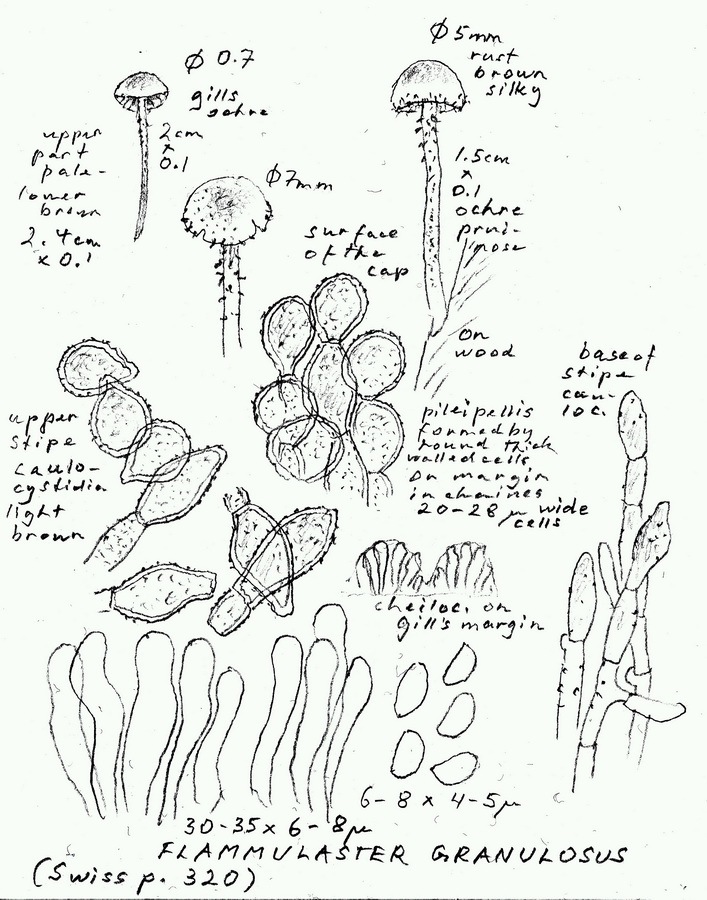 Ø 0.7
gills
ochre
2cm
x
0.1
upper
part
pale-
lower
brown
2.4cm
x 0.1
Ø 5mm
rust
brown
silky
1.5cm
x
0.1
ochre
prui-
nose
on
wood
Ø 7mm
surface
of the
cap
upper
stipe
caulo-
cystidia
light
brown
pileipellis
formed by
round thick
walled cells,
on margin
in chaines
20-28 µ wide
cells
base of
stipe
cau-
loc.
cheiloc. on
gill's margin
6-8 x 4-5µ
30-35 x 6-8µ
FLAMMULASTER GRANULOSUS
(Swiss p. 320)